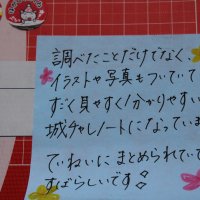 調べたことだけでなく、
イラストや写真もついていて
すごく見やすく!分かりやすい
城チャレノートになっています
ていねいにまとめられていて
すばらしいです!